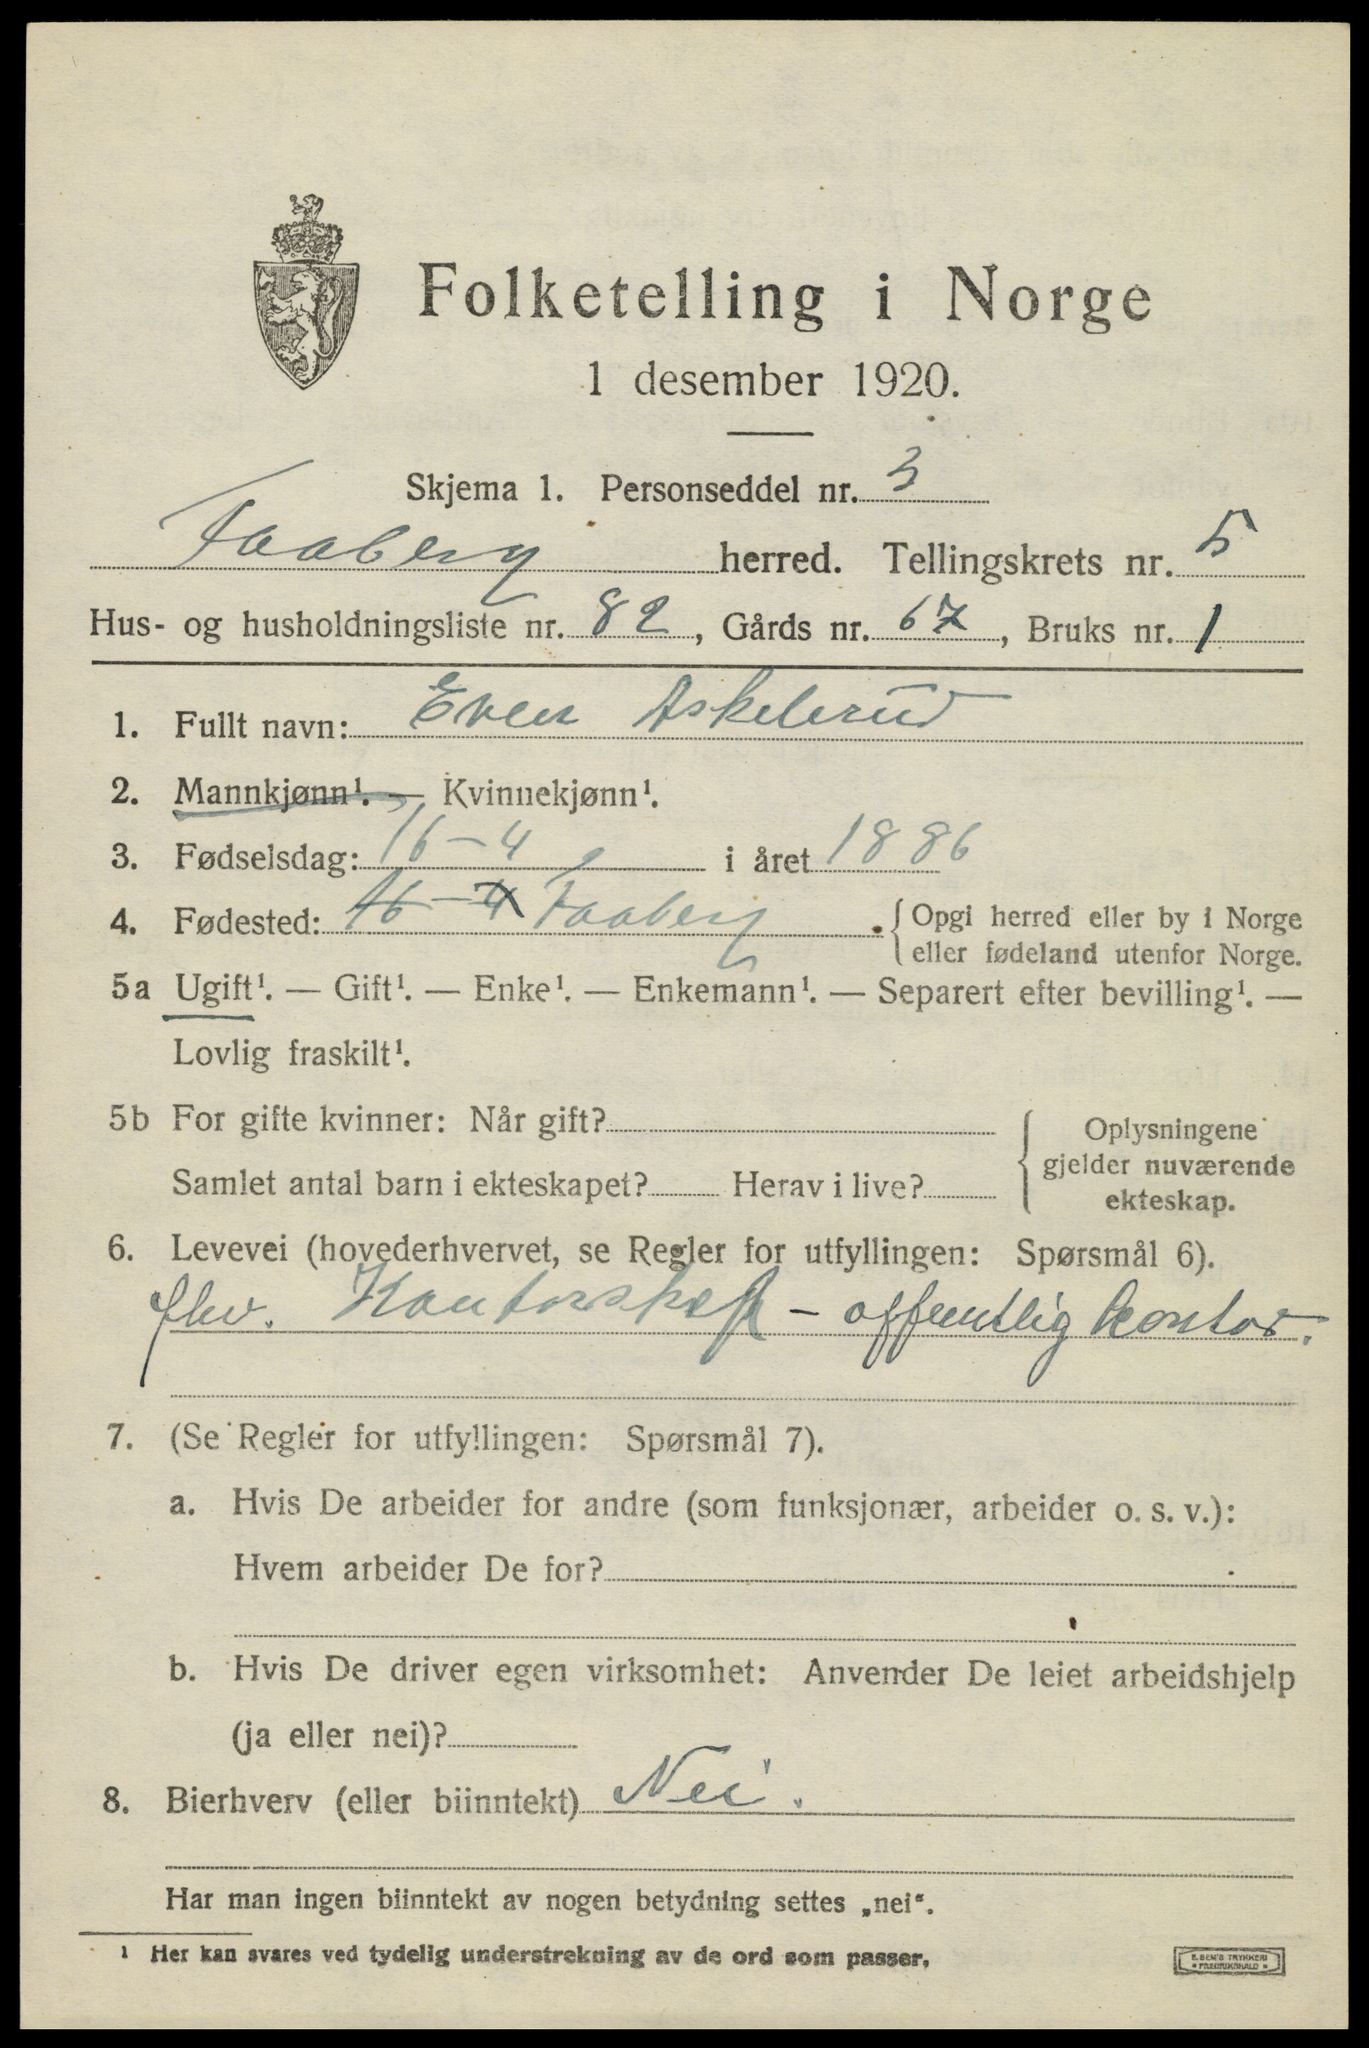 Folketelling i Norge
1 desember 1920.
Skjema 1. Personseddel nr. 3
Faaberg herred. Tellingskrets nr. 5
Hus- og husholdningsliste nr. 82, Gårds nr. 67, Bruks nr. 1
1. Fullt navn: Even Askelerud
2. Mannkjønn¹. — Kvinnekjønn¹.
3. Fødselsdag: 16-4 i året 1886
4. Fødested: 16-4 Faaberg. { Opgi herred eller by i Norge
eller fødeland utenfor Norge.
5a Ugift¹. — Gift¹. — Enke¹. — Enkemann¹. — Separert efter bevilling¹. —
Lovlig fraskilt¹.
5b For gifte kvinner: Når gift? { Oplysningene
gjelder nuværende
Samlet antal barn i ekteskapet? Herav i live?
ekteskap.
6. Levevei (hovederhvervet, se Regler for utfyllingen: Spørsmål 6).
fhv. Kontorshef - offentlig kontor.
7. (Se Regler for utfyllingen: Spørsmål 7).
a. Hvis De arbeider for andre (som funksjonær, arbeider o. s. v.):
Hvem arbeider De for?
b. Hvis De driver egen virksomhet: Anvender De leiet arbeidshjelp
(ja eller nei)?
8. Bierhverv (eller biinntekt) Nei.
Har man ingen biinntekt av nogen betydning settes „nei“.
¹ Her kan svares ved tydelig understrekning av de ord som passer.
E. SEM'S TRYKKERI
FREDRIKSHALD